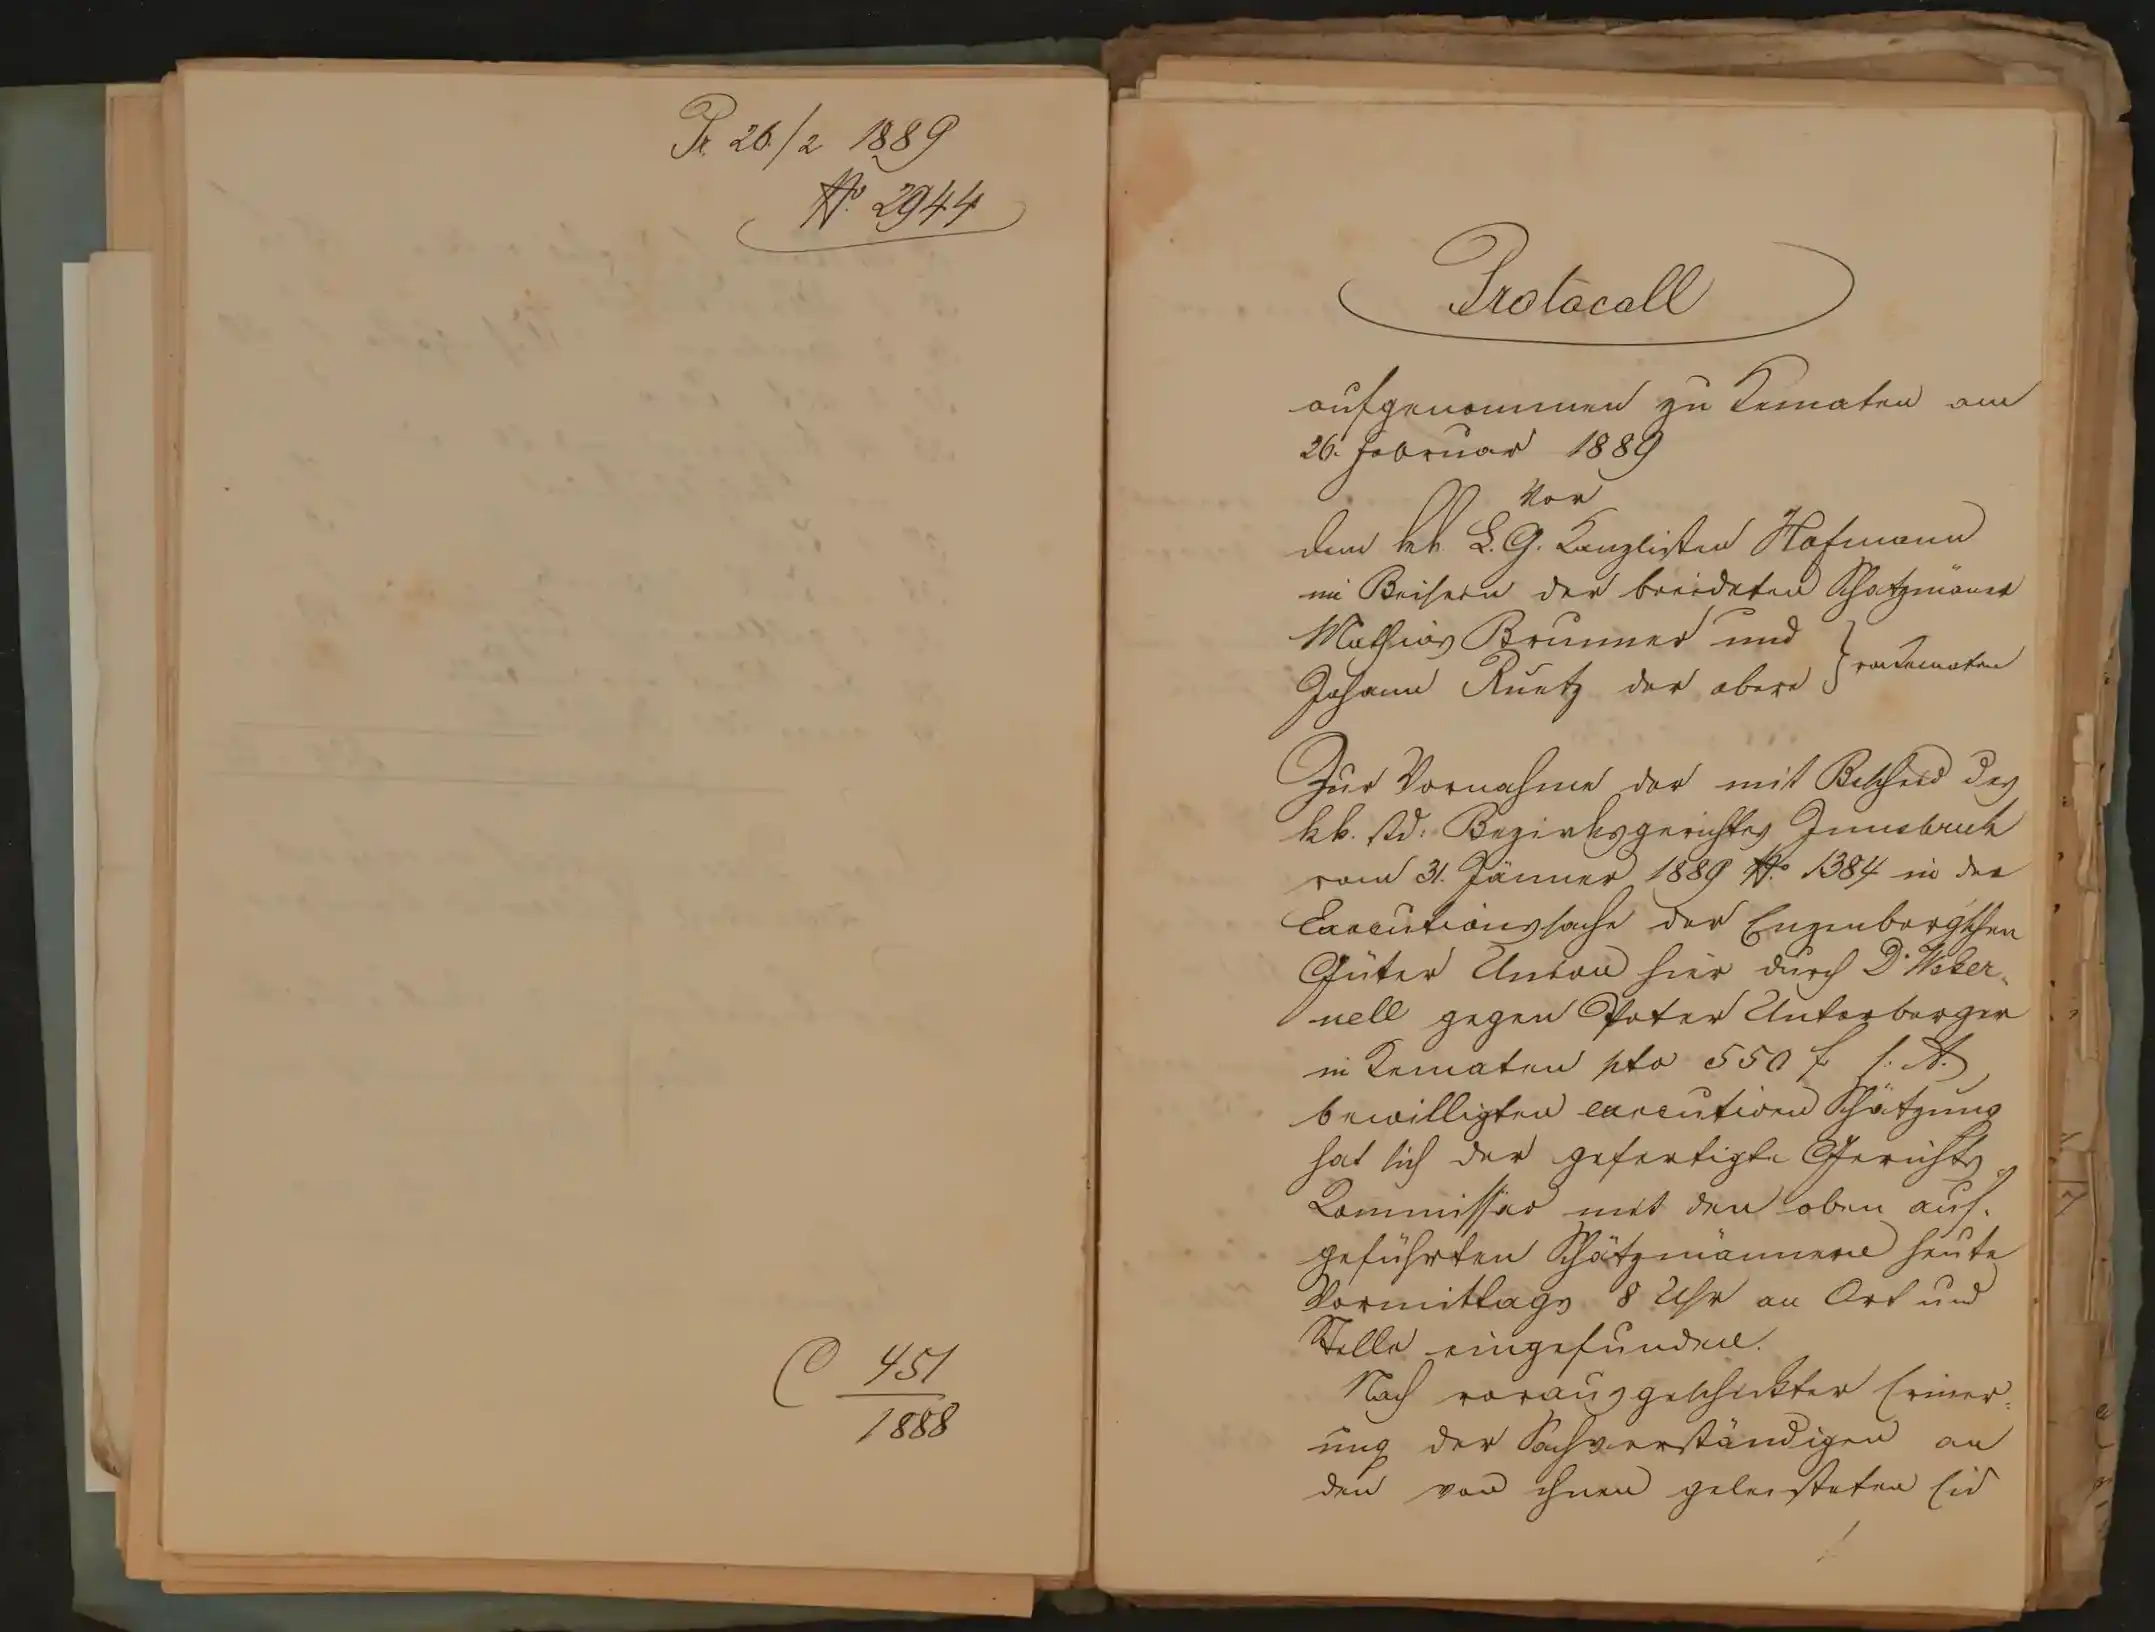 Pr. 26/2 1889
No. 2944
C 451
1888
Protocoll
aufgenommen zu Kematen am
26. Februar 1889
Vor
dem kk. L. G. Kanzlisten Hofmann
im Beisein der beeideten Schatzmäner
Mathias Brunner und
Johann Ruetz der obere } von Kematen
Zur Vornahme der mit Bescheid des
kk. st. d. Bezirksgerichtes Innsbruck
vom 31. Jänner 1889 No. 1384 in der
Executionssache der Enzenberg'schen
Güter Union hier durch Dr. Weker-
nell gegen Peter Unterberger
in Kematen pto 550 f s. A.
bewilligten executiven Schätzung
hat sich der gefertigte Gerichts
Kommissär mit den oben auf-
geführten Schätzmännern heute
Vormittags 8 Uhr an Ort und
Stelle eingefunden.
Nach vorausgeschickter Eriner-
ung der Sachverständigen an
den von ihnen geleisteten Eid